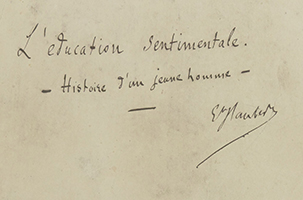 L'éducation sentimentale.
- Histoire d'un jeune homme -
Gve Flaubert